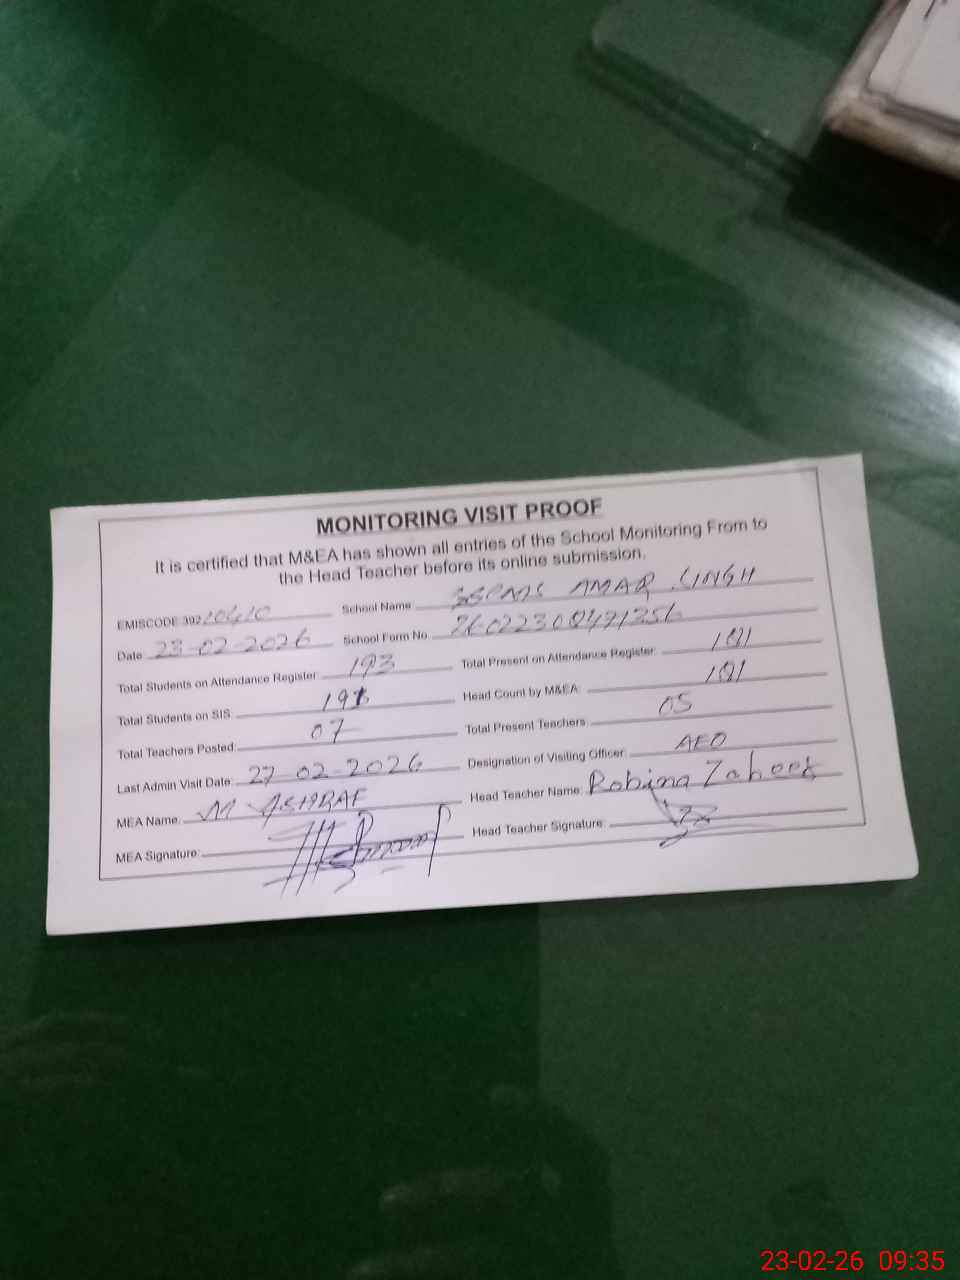 MONITORING VISIT PROOF
It is certified that M&EA has shown all entries of the School Monitoring From to
the Head Teacher before its online submission.
EMISCODE 392 10410 School Name AMAR SINGH
Date 23-02-2026 School Form No.
Total Students on Attendance Register 193 Total Present on Attendance Register: 101
Total Students on SIS Head Count by M&EA: 101
Total Teachers Posted: 07 Total Present Teachers: 05
Last Admin Visit Date: 27-02-2026 Designation of Visiting Officer: AEO
MEA Name: M ASHRAF Head Teacher Name: Robina Zaheer
MEA Signature: Head Teacher Signature:
23-02-26 09:35